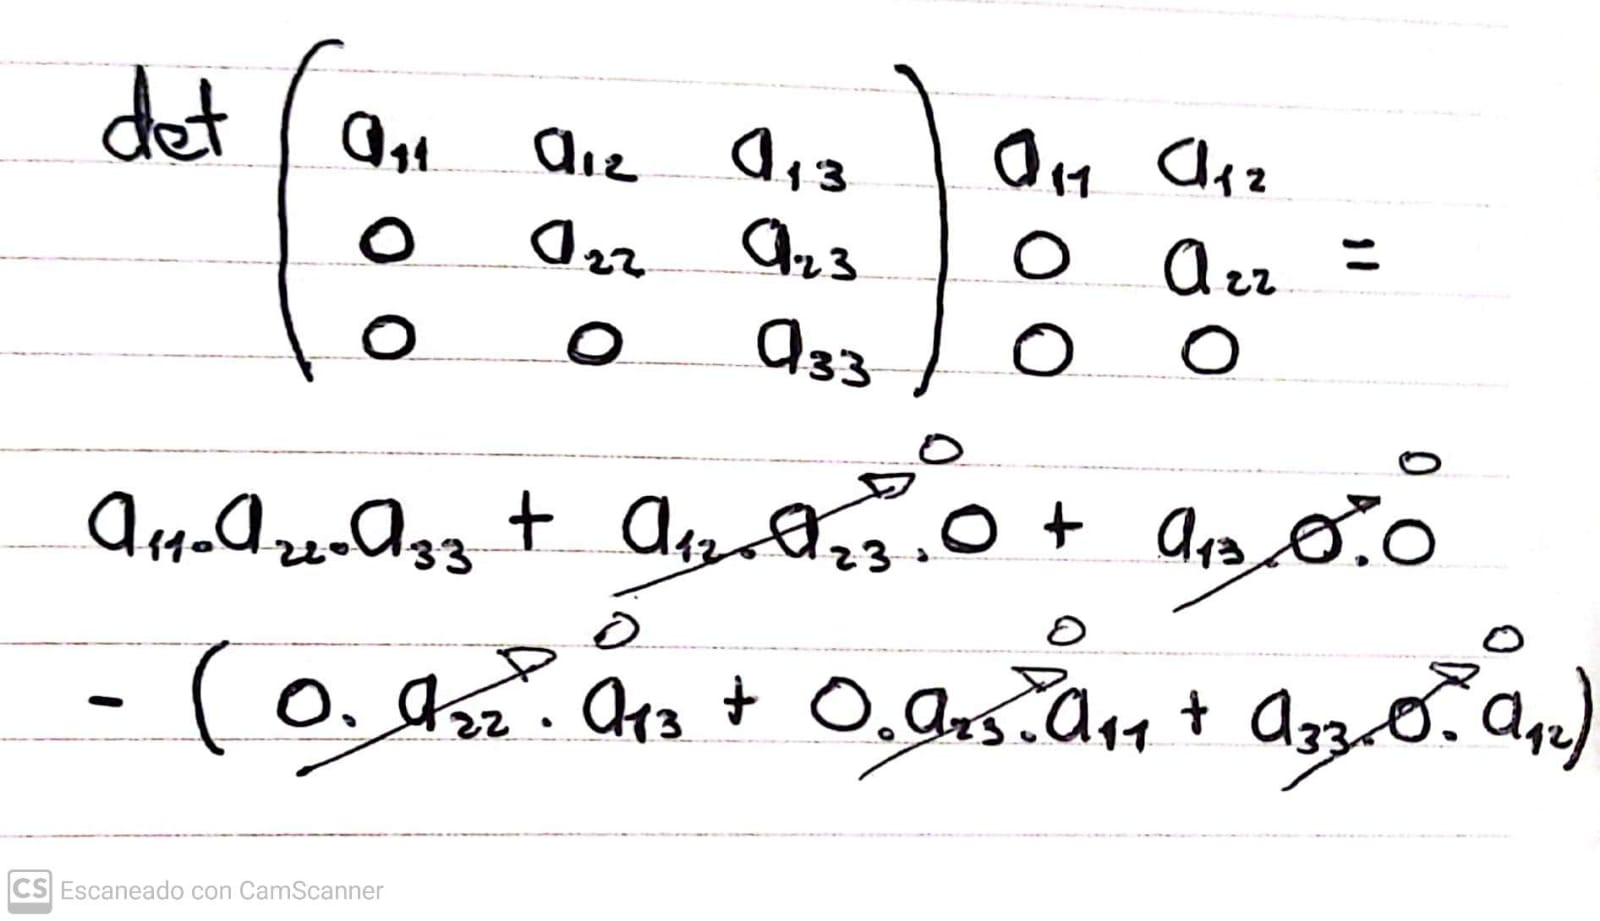 det ( a₁₁ a₁₂ a₁₃ ) a₁₁ a₁₂
0 a₂₂ a₂₃ 0 a₂₂ =
0 0 a₃₃ 0 0
0 0
a₁₁.a₂₂.a₃₃ + a₁₂.a₂₃.0 + a₁₃.0.0
0 0 0
- ( 0. a₂₂ . a₁₃ + 0.a₂₃.a₁₁ + a₃₃.0. a₁₂)
CS Escaneado con CamScanner